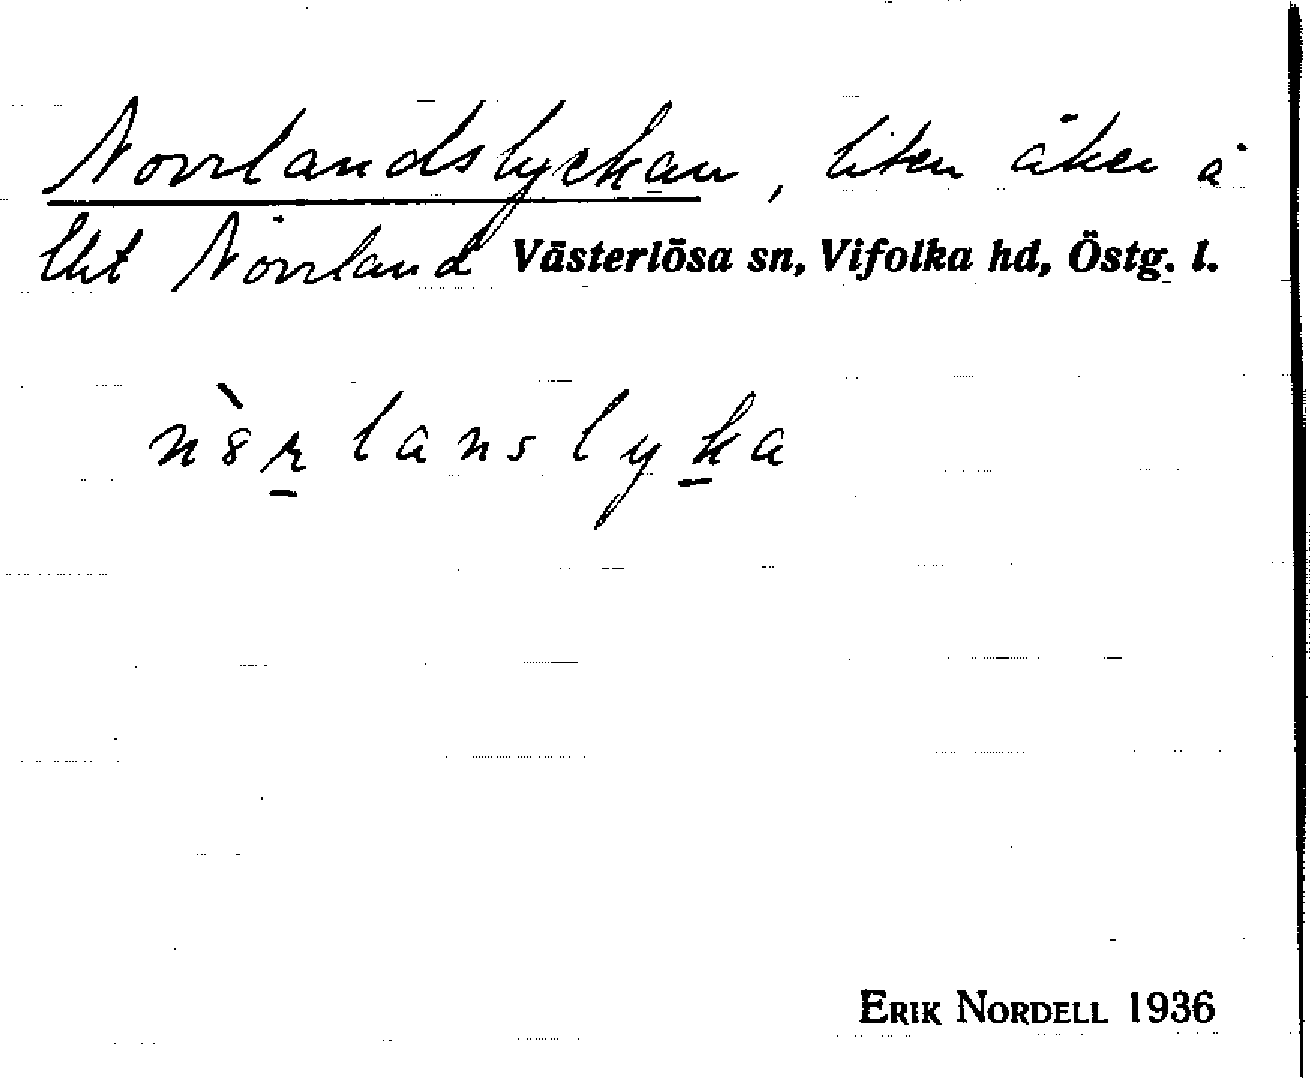 Norrlandslyckan, liten åker å
Lht Norrland Västerlösa sn, Vifolka hd, Östg. l.
n8̀r̲lanslyk̲a
ERIK NORDELL 1936